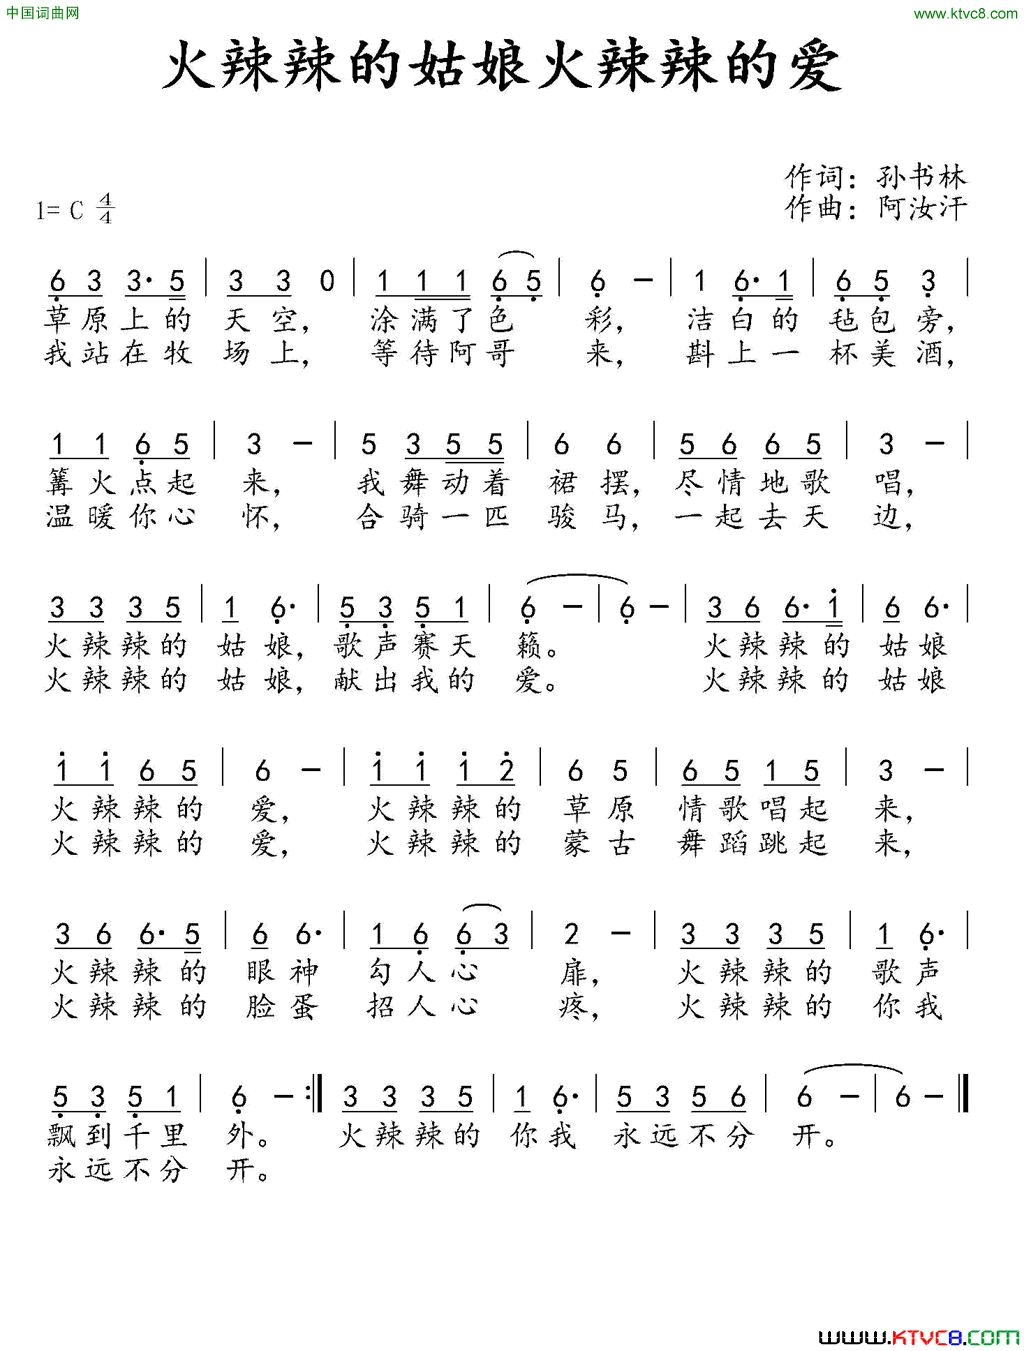 中国词曲网
www.ktvc8.com
火辣辣的姑娘火辣辣的爱
作词：孙书林
1= C 4/4
作曲：阿汝汗
6 3 3· 5 | 3 3 0 | 1 1 1 6 5 | 6 － | 1 6· 1 | 5 6 3 |
草原上的 天空， 涂满了色 彩， 洁白的 毡包旁，
我站在牧 场上， 等待阿哥 来， 斟上一 杯美酒，
1 1 6 5 | 3 － | 5 3 5 5 | 6 6 | 5 6 6 5 | 3 － |
篝火点起 来， 我舞动着 裙摆， 尽情地歌 唱，
温暖你心 怀， 合骑一匹 骏马， 一起去天 边，
3 3 3 5 | 1 6· | 5 3 5 1 | 6 － | 6 － | 3 6 6· 1 | 6 6· |
火辣辣的 姑娘， 歌声赛天 籁。 火辣辣的 姑娘
火辣辣的 姑娘， 献出我的 爱。 火辣辣的 姑娘
1 1 6 5 | 6 － | 1 1 1 2 | 6 5 | 6 5 1 5 | 3 － |
火辣辣的 爱， 火辣辣的 草原 情歌唱起 来，
火辣辣的 爱， 火辣辣的 蒙古 舞蹈跳起 来，
3 6 6· 5 | 6 6· | 1 6 6 3 | 2 － | 3 3 3 5 | 1 6· |
火辣辣的 眼神 勾人心 扉， 火辣辣的 歌声
火辣辣的 脸蛋 招人心 疼， 火辣辣的 你我
5 3 5 1 | 6 － :‖ 3 3 3 5 | 1 6· | 5 3 5 6 | 6 － | 6 － ‖
飘到千里 外。 火辣辣的 你我 永远不分 开。
永远不分 开。
www.KTVC8.com